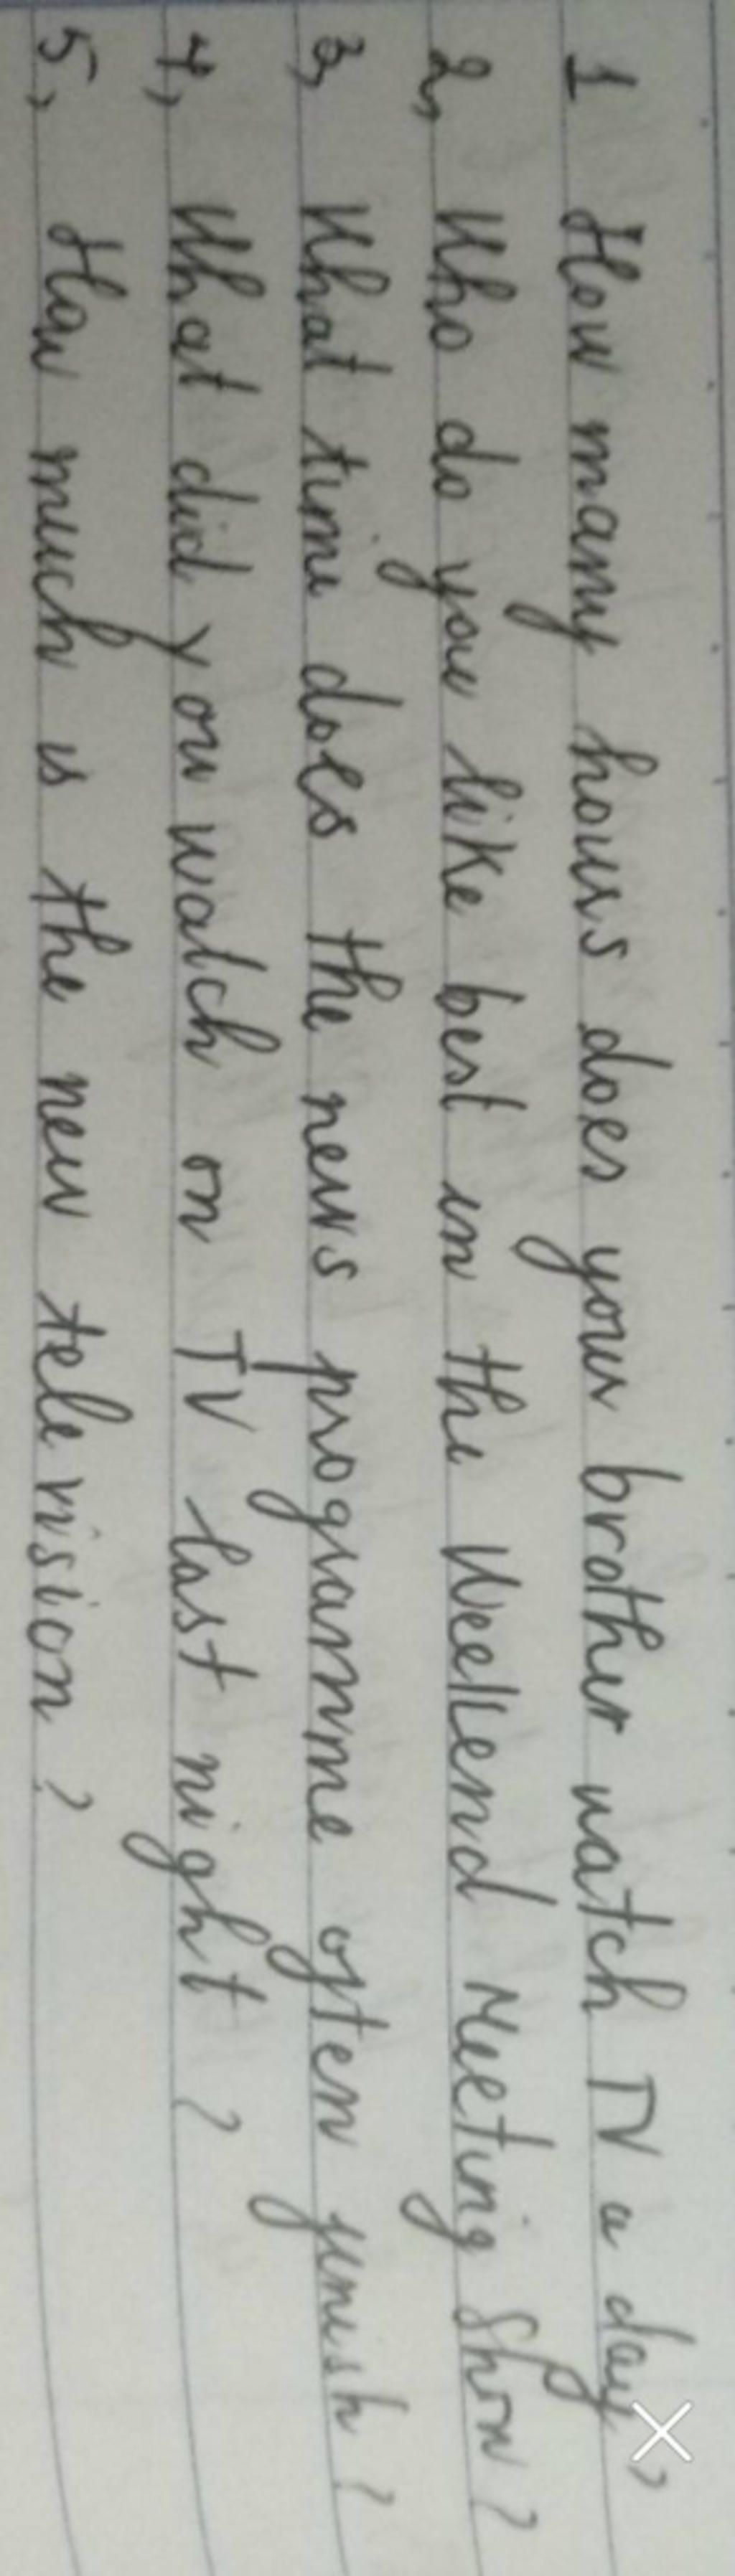 1 How many hours does your brother watch TV a day?
2, Who do you like best in the Weekend Meeting Show?
3, What time does the news programme often finish?
4, What did you watch on TV last night?
5, How much is the new television?